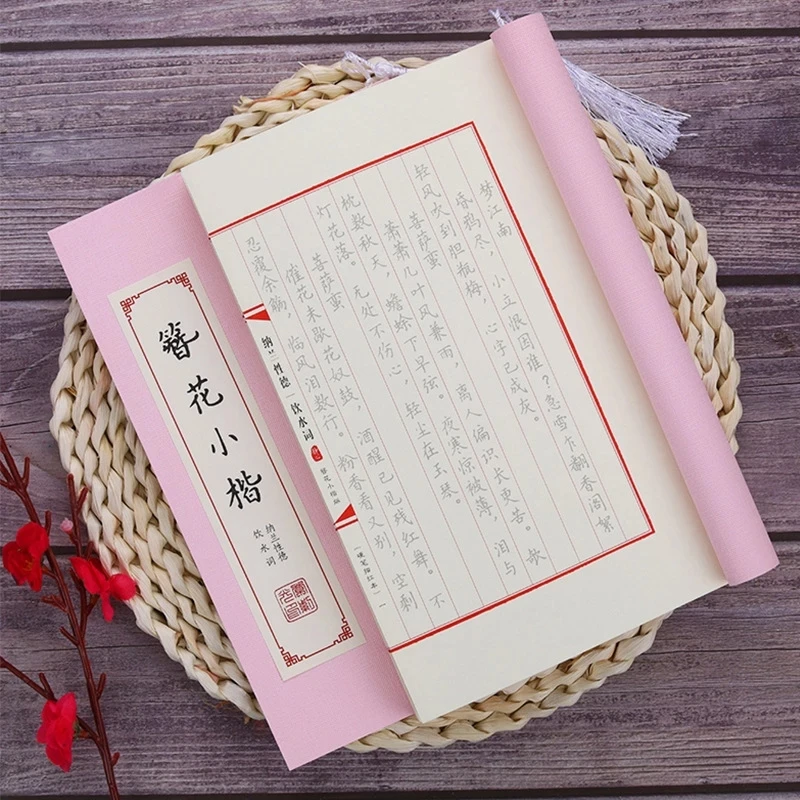 梦江南
昏鸦尽，小立恨因谁？急雪乍翻香阁絮
轻风吹到胆瓶梅，心字已成灰。
菩萨蛮
萧萧几叶风兼雨，离人偏识长更苦。欹
枕数秋天，蟾蜍下早弦。夜寒惊被薄，泪与
灯花落。无处不伤心，轻尘在玉琴。
菩萨蛮
催花未歇花奴鼓，酒醒已见残红舞。不
忍覆余觞，临风泪数行。粉香看又别，空剩
纳兰性德｜饮水词
（硬笔描红本）
一
簪花小楷
纳兰性德
饮水词